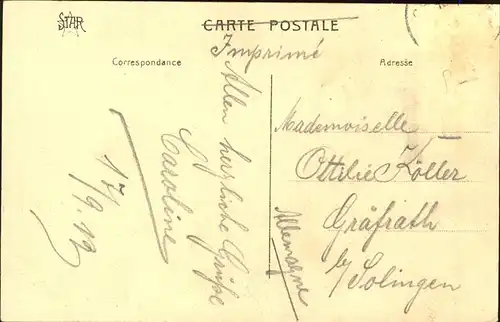 STAR
CARTE POSTALE
Imprimé
Correspondance
Adresse
Allen herzliche Grüße
Caroline
17/9.12
Mademoiselle
Ottilie Köller
Gräfrath
b/ Solingen
Allemagne